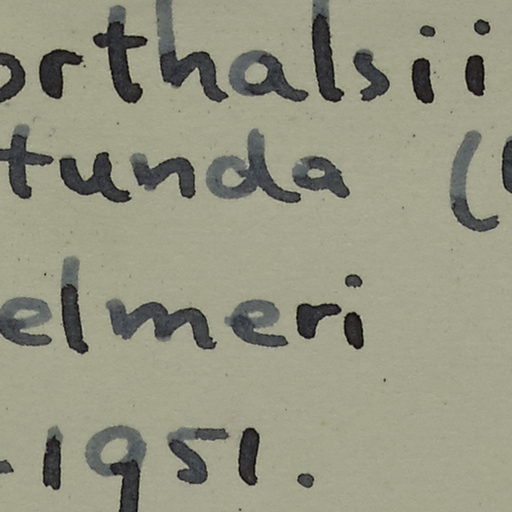 orthalsii
tunda (
elmeri
-1951.